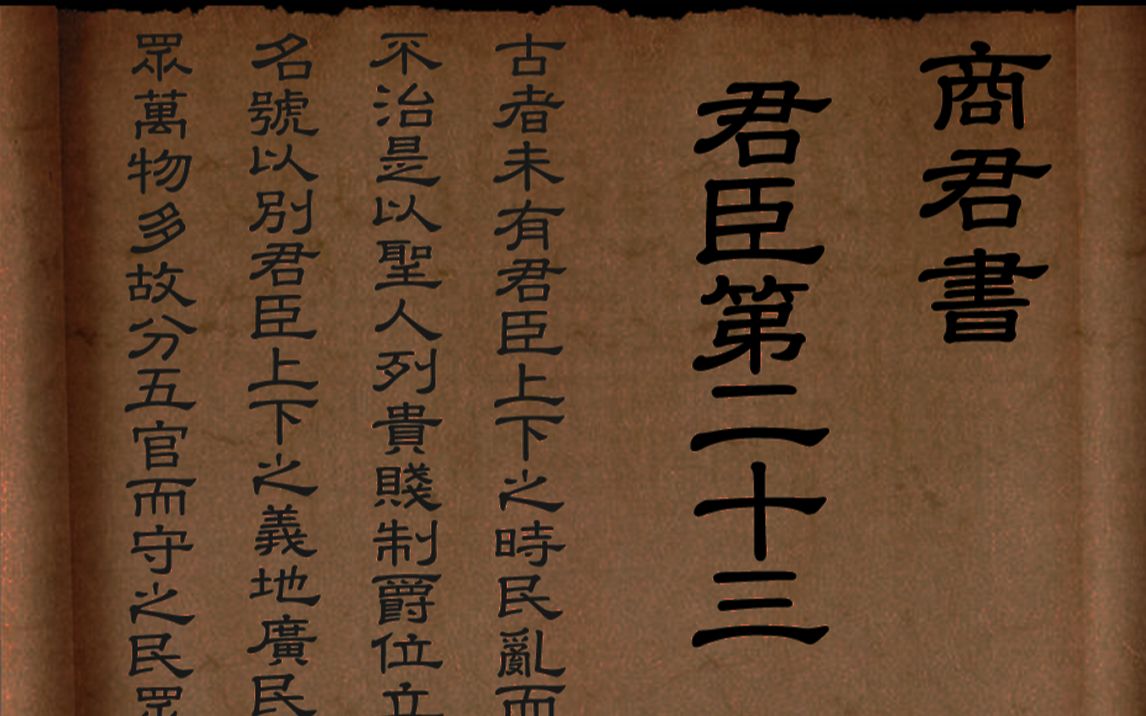 商君書
君臣第二十三
古者未有君臣上下之時民亂而
不治是以聖人列貴賤制爵位立
名號以別君臣上下之義地廣民
眾萬物多故分五官而守之民眾